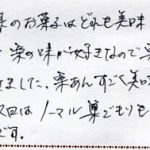 様のお菓子はどれも美味
栗の味が好きなので栗
ました。栗あんすごく美味
次回はノーマル巣ごもりも
です。